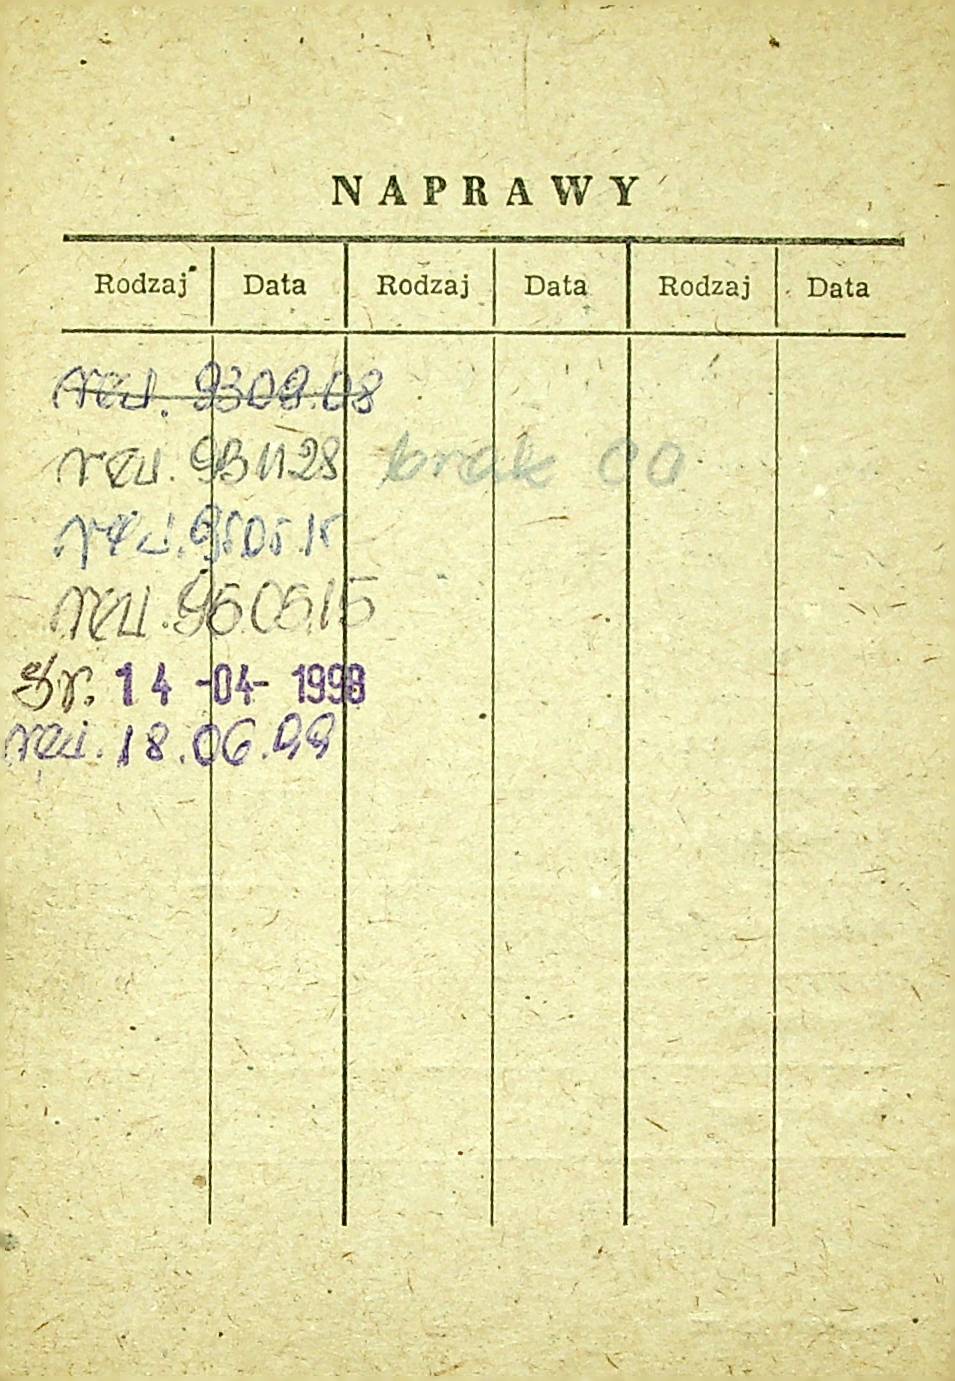 NAPRAWY
Rodzaj Data Rodzaj Data Rodzaj Data
rew. 9309.08
rew. 931128 brak CO
rew. 9505.15
rew. 960615
śr. 14 -04- 1998
rew. 18.06.99